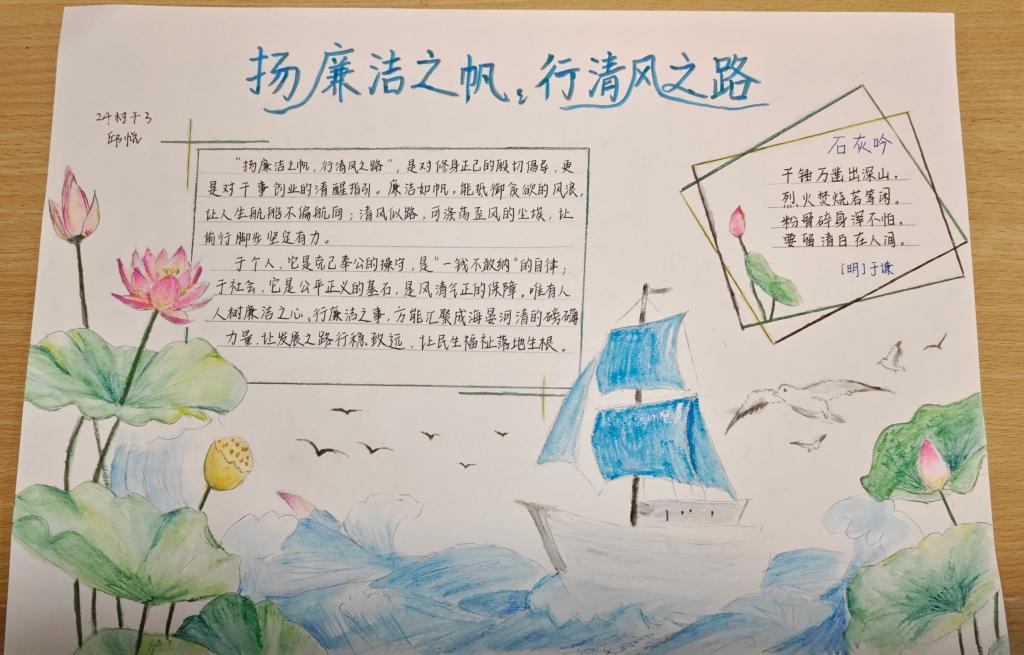 扬廉洁之帆，行清风之路
24村干3
邱悦
“扬廉洁之帆，行清风之路”，是对修身正己的殷切倡导，更
是对干事创业的清醒指引。廉洁如帆，能抵御贪欲的风浪，
让人生航船不偏航向；清风似路，可涤荡歪风的尘埃，让
前行脚步坚定有力。
于个人，它是克己奉公的操守，是“一钱不敢纳”的自律；
于社会，它是公平正义的基石，是风清气正的保障。唯有人
人树廉洁之心、行廉洁之事，方能汇聚成海晏河清的磅礴
力量，让发展之路行稳致远，让民生福祉落地生根。
石灰吟
千锤万凿出深山，
烈火焚烧若等闲。
粉骨碎身浑不怕，
要留清白在人间。
[明]于谦